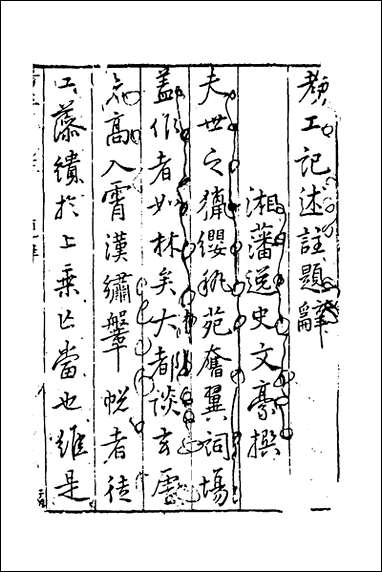 考工記述註題辭
湘藩逸史文豪撰
夫世之獵纓秇苑奮翼詞場
蓋作者如林矣大都談玄虛
高入霄漢繡鞶帨者徒
工藻繢於上乘亡當也雖是